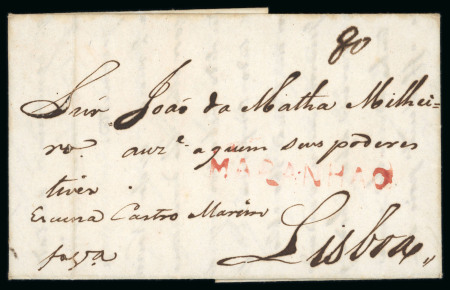 80
Snr. João da Matha Milhei=
ro. auze. a quem seus poderes
tiver.
MARANHAO
Escuna Castro Marim
Lisboa